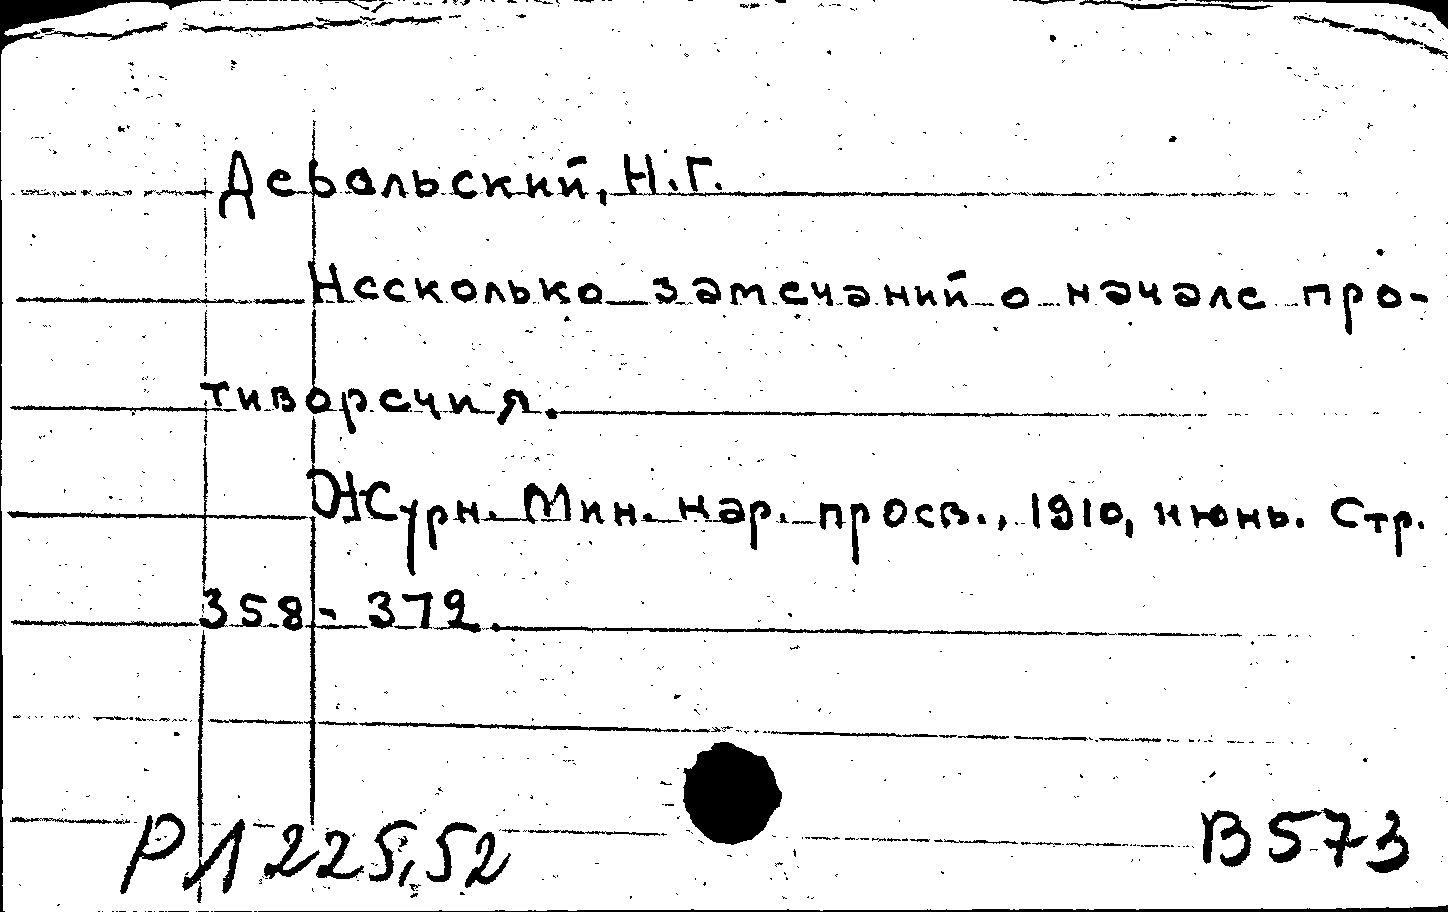 Дебольский, Н.Г.
Несколько замечаний о начале про-
тиворечия.
Журн. Мин. нар. просв., 1910, июнь. Стр.
358-372.
РЛ 225,52
В573